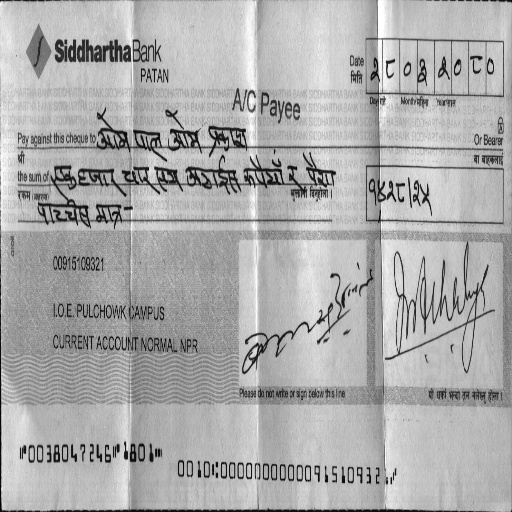 SiddharthaBank
PATAN
Date २८०३२०८०
मिति
Day गते Month महिना Year साल
A/C Payee
Pay against this cheque to ओम पाल ओम प्रकाश Or Bearer
श्री वा वाहकलाई
the sum of एक हजार चार सय अठाईस रूपैयाँ र पैसा
रकम (अक्षरमा)
पच्चिस मात्र - १४२८/२५
00915109321
I.O.E. PULCHOWK CAMPUS
CURRENT ACCOUNT NORMAL NPR
Please do not write or sign below this line
⑈0038047246⑈1801⑈ 0010⑆00000000000915109321⑈